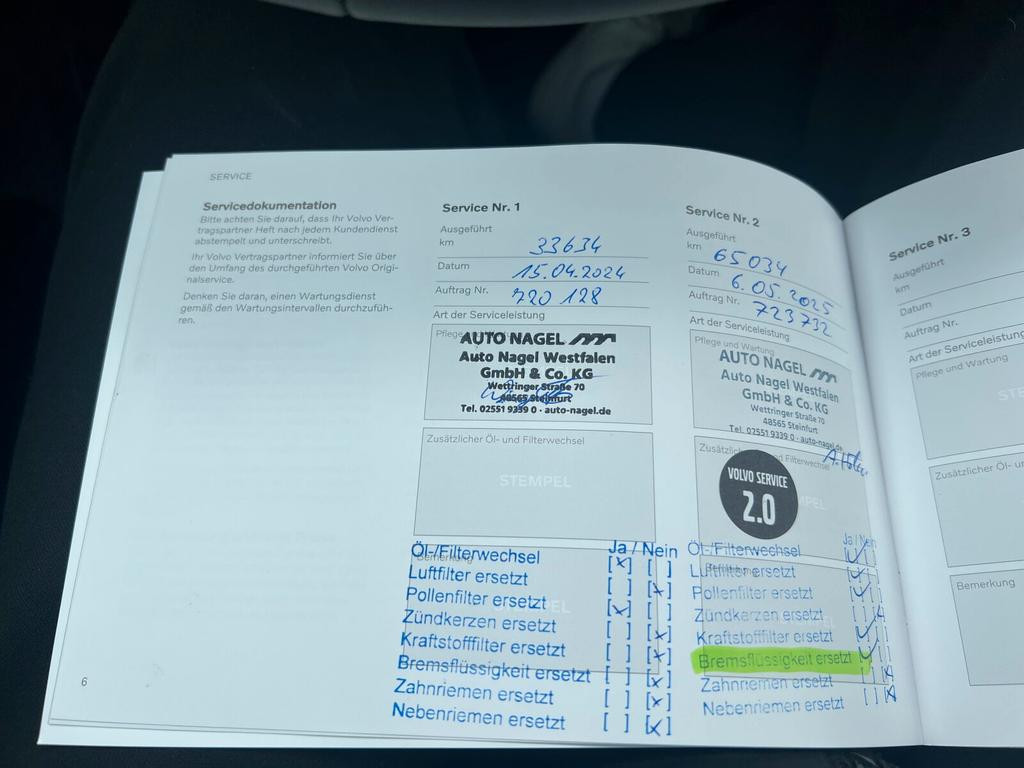 SERVICE
Servicedokumentation
Bitte achten Sie darauf, dass Ihr Volvo Ver-
tragspartner Heft nach jedem Kundendienst
abstempelt und unterschreibt.
Ihr Volvo Vertragspartner informiert Sie über
den Umfang des durchgeführten Volvo Origi-
nalservice.
Denken Sie daran, einen Wartungsdienst
gemäß den Wartungsintervallen durchzufüh-
ren.
6
Service Nr. 1
Ausgeführt
km 33634
Datum 15.04.2024
Auftrag Nr. 720 128
Art der Serviceleistung
Pflege und Wartung
AUTO NAGEL
Auto Nagel Westfalen
GmbH & Co. KG
Wettringer Straße 70
48565 Steinfurt
Tel. 02551 9339 0 · auto-nagel.de
Zusätzlicher Öl- und Filterwechsel
STEMPEL
Bemerkung
Ja / Nein
Öl-/Filterwechsel [x] [ ]
Luftfilter ersetzt [ ] [x]
Pollenfilter ersetzt [x] [ ]
Zündkerzen ersetzt [ ] [x]
Kraftstofffilter ersetzt [ ] [x]
Bremsflüssigkeit ersetzt [ ] [x]
Zahnriemen ersetzt [ ] [x]
Nebenriemen ersetzt [ ] [x]
Service Nr. 2
Ausgeführt
km 65034
Datum 6.05.2025
Auftrag Nr. 723732
Art der Serviceleistung
Pflege und Wartung
AUTO NAGEL
Auto Nagel Westfalen
GmbH & Co. KG
Wettringer Straße 70
48565 Steinfurt
Tel. 02551 9339 0 · auto-nagel.de
Zusätzlicher Öl- und Filterwechsel
VOLVO SERVICE
2.0
Ja / Nein
Öl-/Filterwechsel
Luftfilter ersetzt
Pollenfilter ersetzt
Zündkerzen ersetzt
Kraftstofffilter ersetzt
Bremsflüssigkeit ersetzt
Zahnriemen ersetzt
Nebenriemen ersetzt
Service Nr. 3
Ausgeführt
km
Datum
Auftrag Nr.
Art der Serviceleistung
Pflege und Wartung
Zusätzlicher Öl- u
Bemerkung